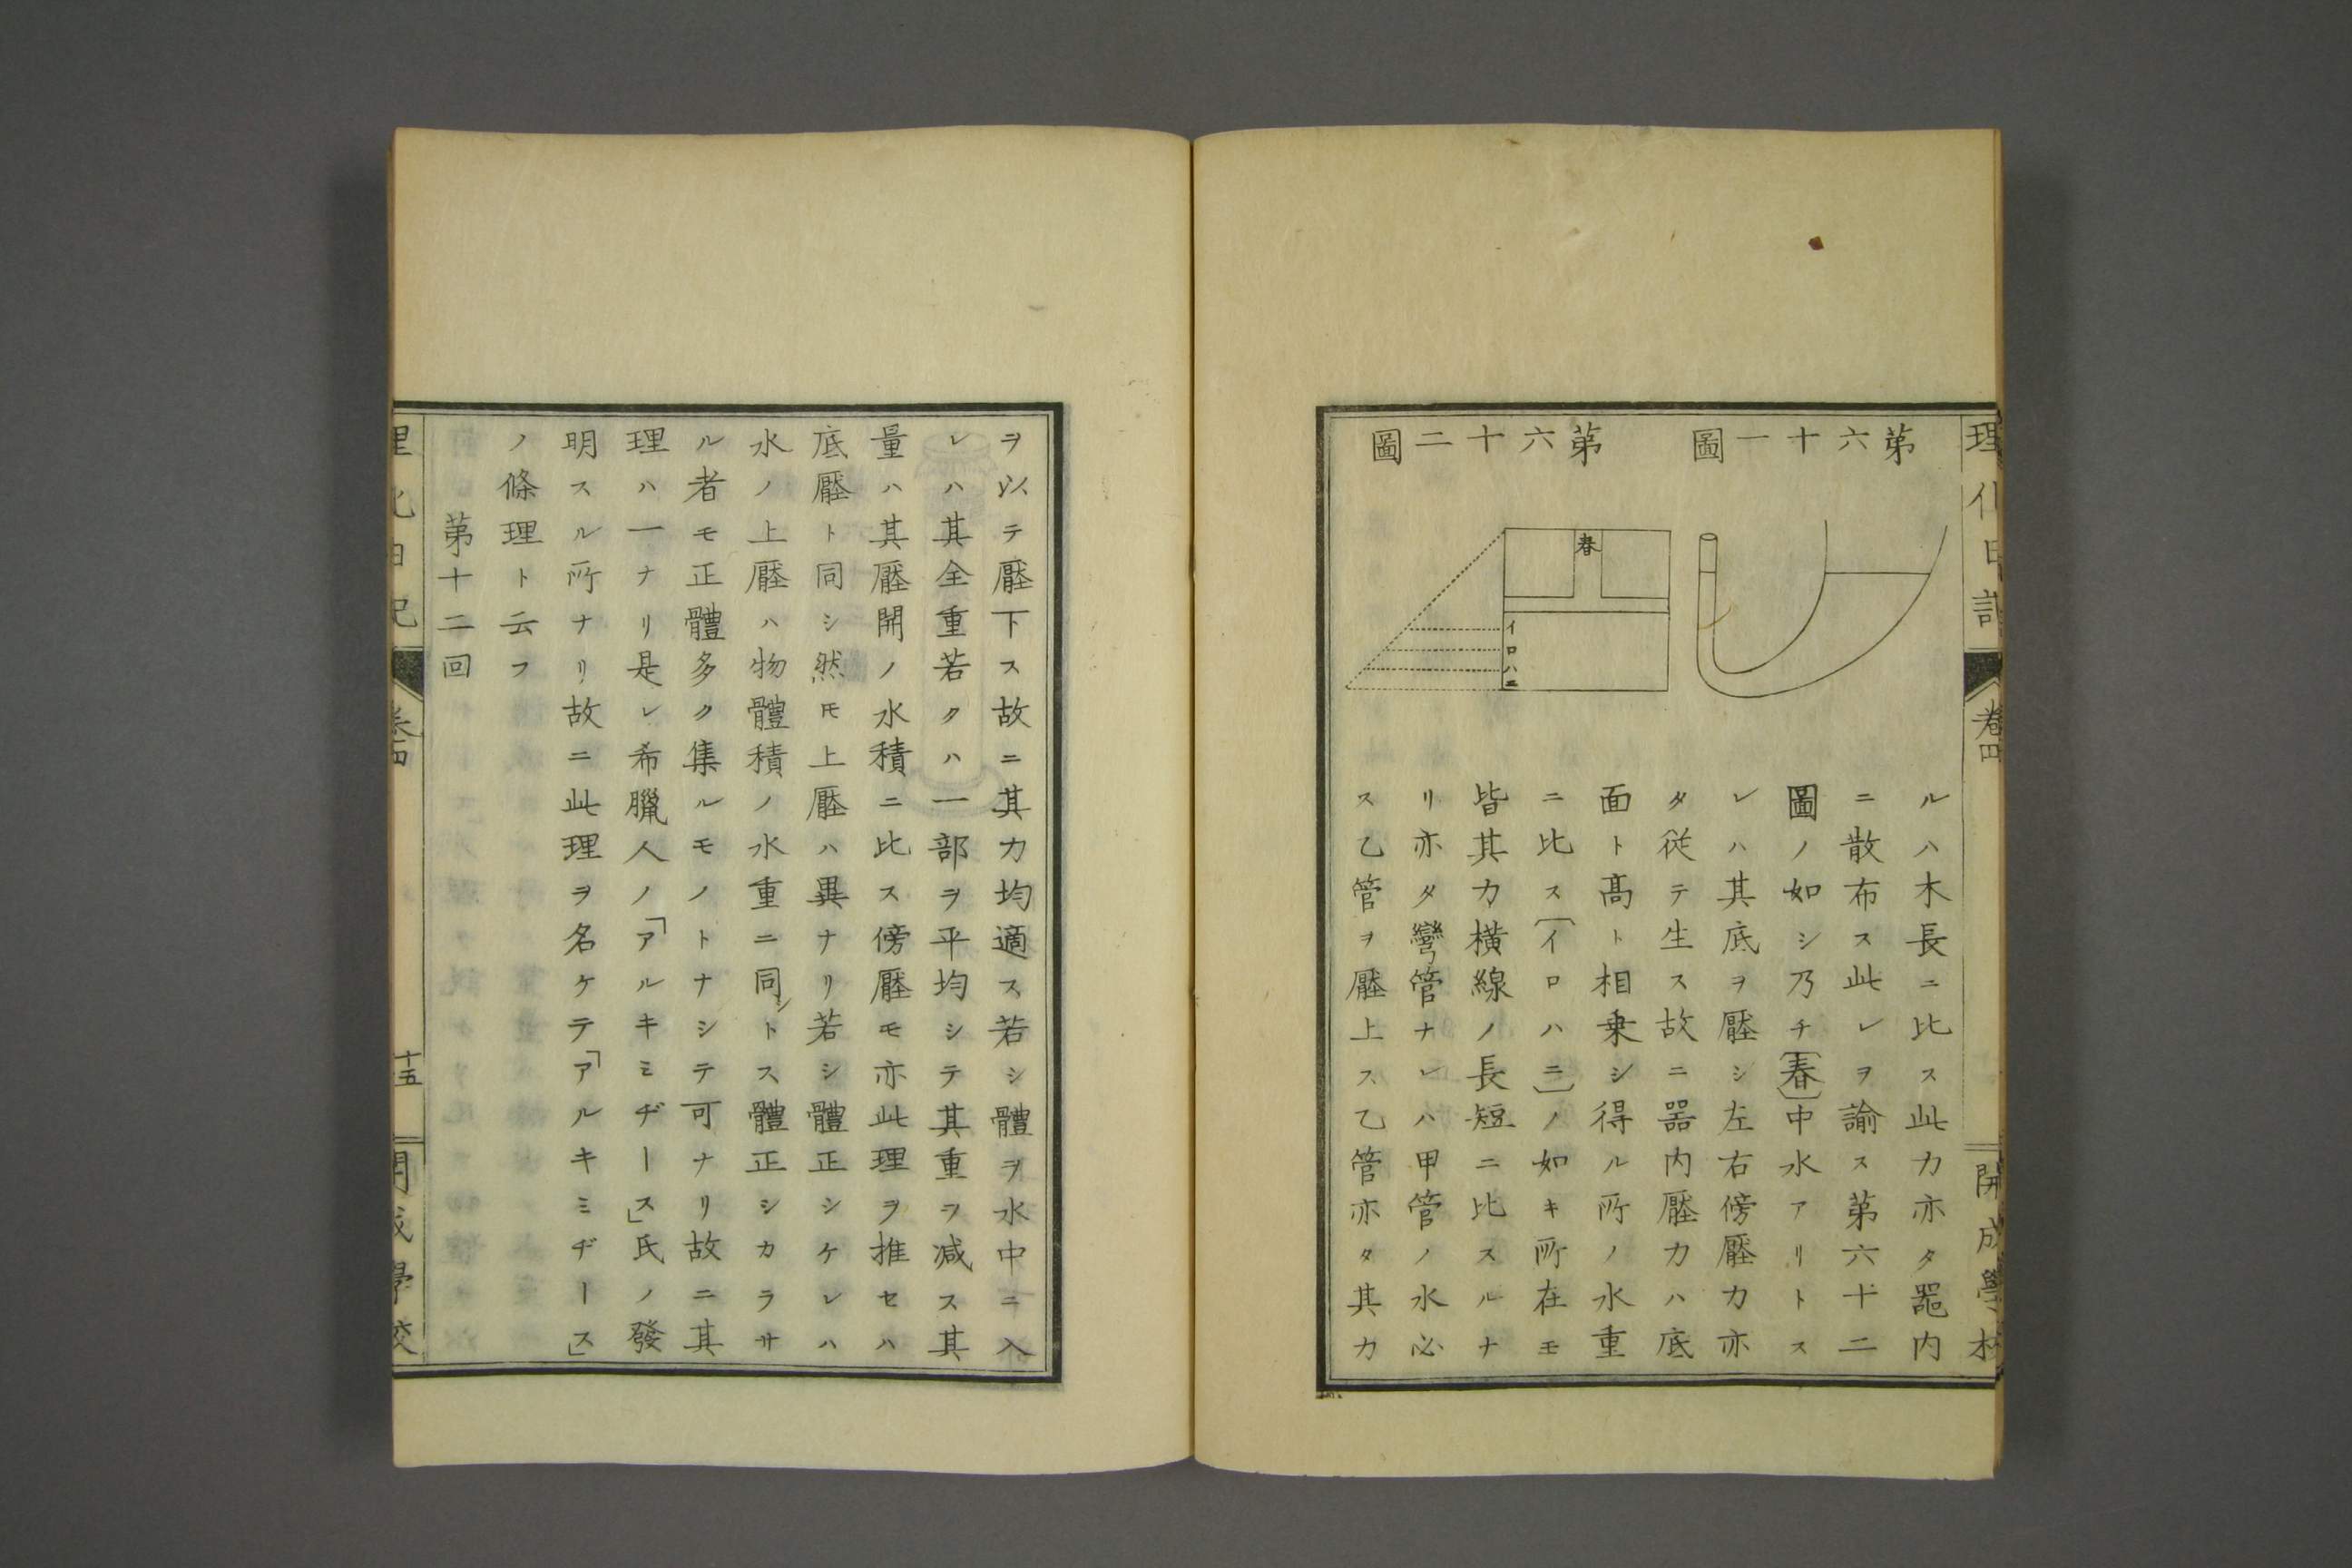 理化日記
卷四
開成學校
第六十一圖
第六十二圖
春
イ
ロ
ハ
ニ
ルハ木長ニ比ス此力亦タ噐内
ニ散布ス此レヲ諭ス第六十二
圖ノ如シ乃チ〔春〕中水アリトス
レハ其底ヲ壓シ左右傍壓力亦
タ従テ生ス故ニ噐内壓力ハ底
面ト髙ト相乗シ得ル所ノ水重
ニ比ス〔イロハニ〕ノ如キ所在モ
皆其力横線ノ長短ニ比スルナ
リ亦タ彎管ナレハ甲管ノ水必
ス乙管ヲ壓上ス乙管亦タ其力
ヲ以テ壓下ス故ニ其力均適ス若シ體ヲ水中ニ入
レハ其全重若クハ一部ヲ平均シテ其重ヲ減ス其
量ハ其壓開ノ水積ニ比ス傍壓モ亦此理ヲ推セハ
底壓ト同シ然モ上壓ハ異ナリ若シ體正シケレハ
水ノ上壓ハ物體積ノ水重ニ同シトス體正シカラサ
ル者モ正體多ク集ルモノトナシテ可ナリ故ニ其
理ハ一ナリ是レ希臘人ノ「アルキミヂース」氏ノ發
明スル所ナリ故ニ此理ヲ名ケテ「アルキミヂース」
ノ條理ト云フ
第十二回
理化日記
卷四
十五
開成學校